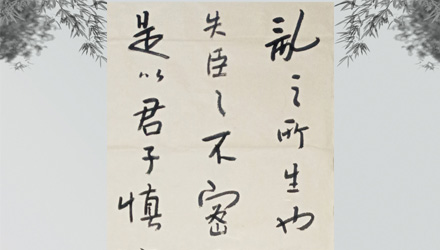 亂之所生也
失臣〻不密
是以君子慎